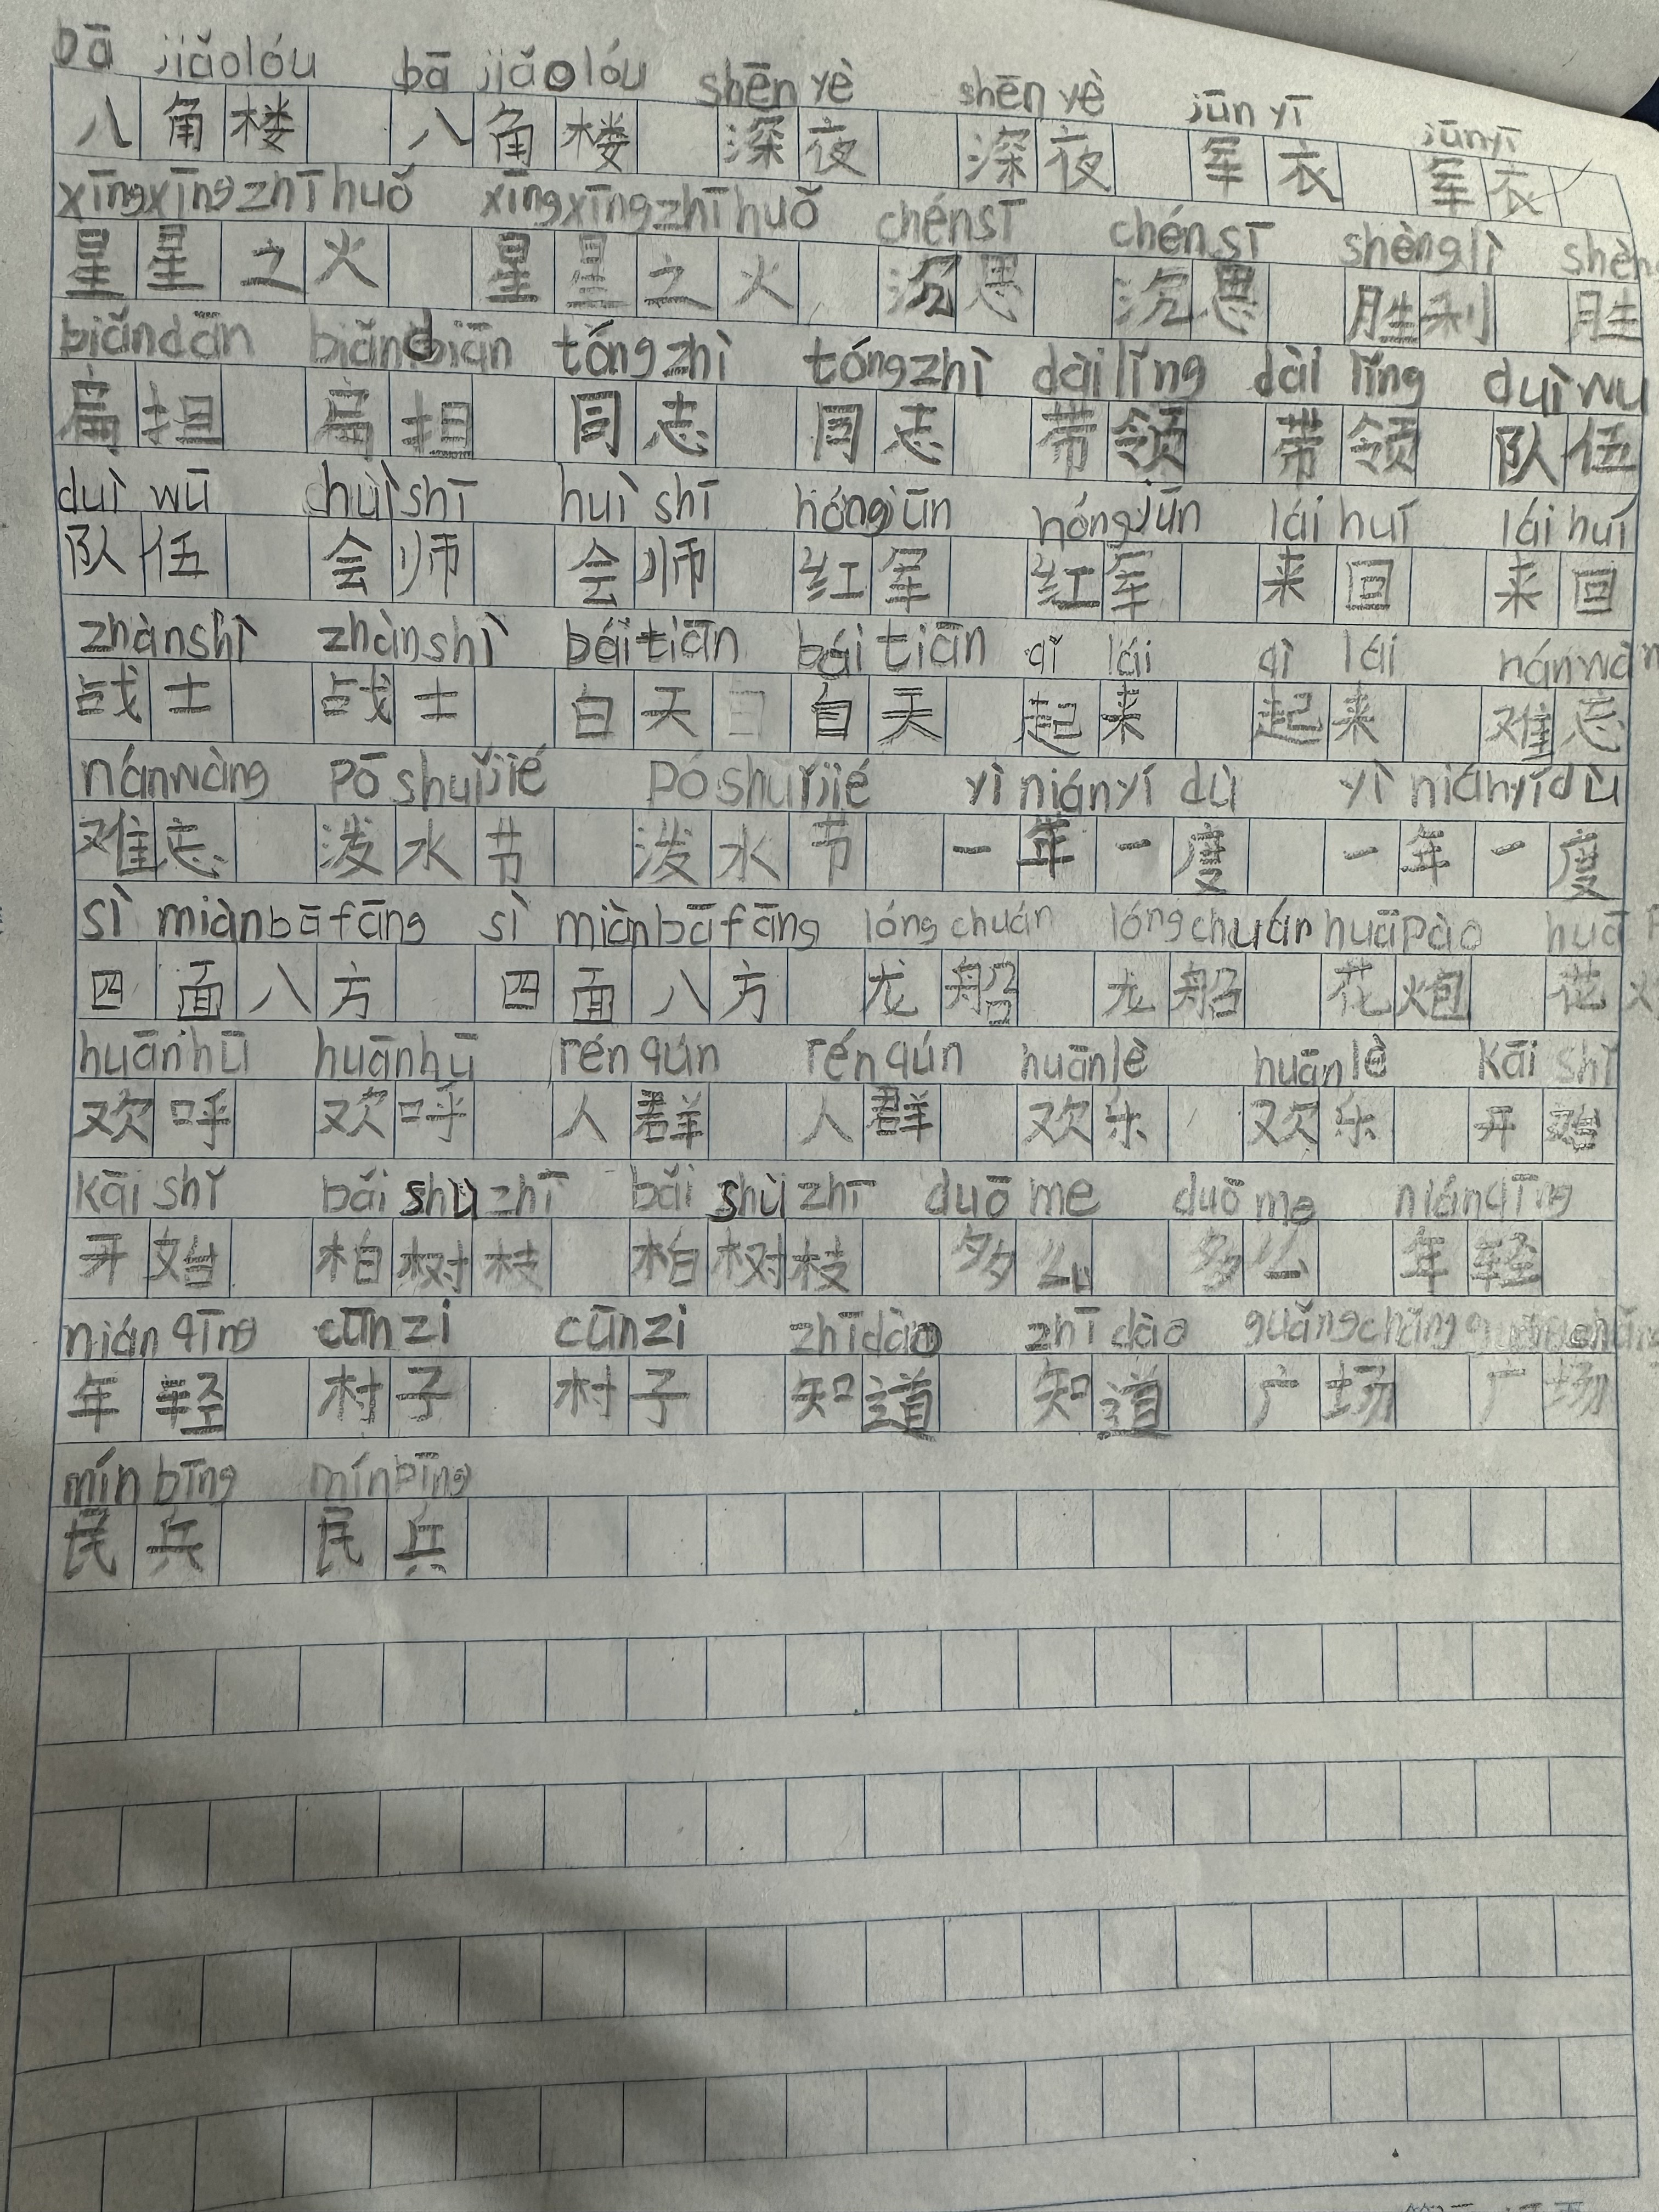 bā jiǎolóu bā jiǎolóu shēn yè shēn yè jūn yī jūnyī
八角楼 八角楼 深夜 深夜 军衣 军衣
xīngxīngzhīhuǒ xīngxīngzhīhuǒ chénsī chénsī shènglì shèng
星星之火 星星之火 沉思 沉思 胜利 胜
biǎndān biǎndiān tóngzhì tóngzhì dàilǐng dài lǐng duìwu
扁担 扁担 同志 同志 带领 带领 队伍
duì wū huì shī huì shī hóngjūn hóngjūn lái huí lái huí
队伍 会师 会师 红军 红军 来回 来回
zhànshì zhànshì báitiān bái tiān qǐ lái qǐ lái nánwàn
战士 战士 白天 白天 起来 起来 难忘
nánwàng Pō shuǐjié Pō shuǐjié yì niányí dù yì niányídù
难忘 泼水节 泼水节 一年一度 一年一度
sì miànbāfāng sì miànbāfāng lóngchuán lóngchuán huāpào huā P
四面八方 四面八方 龙船 龙船 花炮 花火
huānhū huānhū rénqún rénqún huānlè huānlè Kāi shǐ
欢呼 欢呼 人群 人群 欢乐 欢乐 开始
Kāi shǐ bǎi shù zhī bǎi shù zhī duō me duō me niánqīng
开始 柏树枝 柏树枝 多么 多么 年轻
nián qīng cūnzi cūnzi zhīdào zhīdào guǎngchǎng guǎngchǎng
年轻 村子 村子 知道 知道 广场 广场
mín bīng mínbīng
民兵 民兵